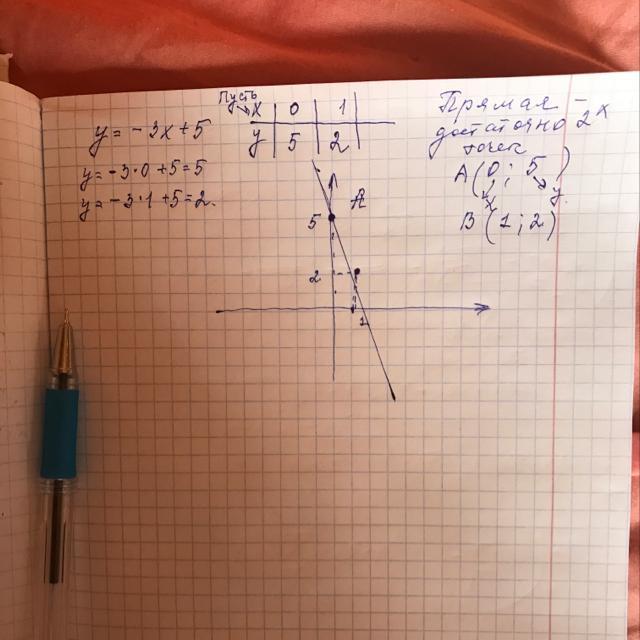 Пусть
x 0 1
y 5 2
y = - 3x + 5
y = - 3 · 0 + 5 = 5
y = - 3 · 1 + 5 = 2.
Прямая -
достаточно 2х
точек
A (0 ; 5)
x y
B (1 ; 2)
A
5
2
1